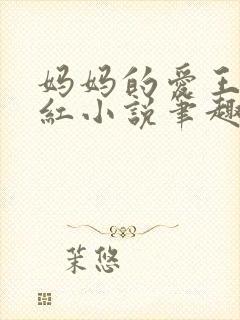 妈妈的爱王
红小说笔趣
茉悠